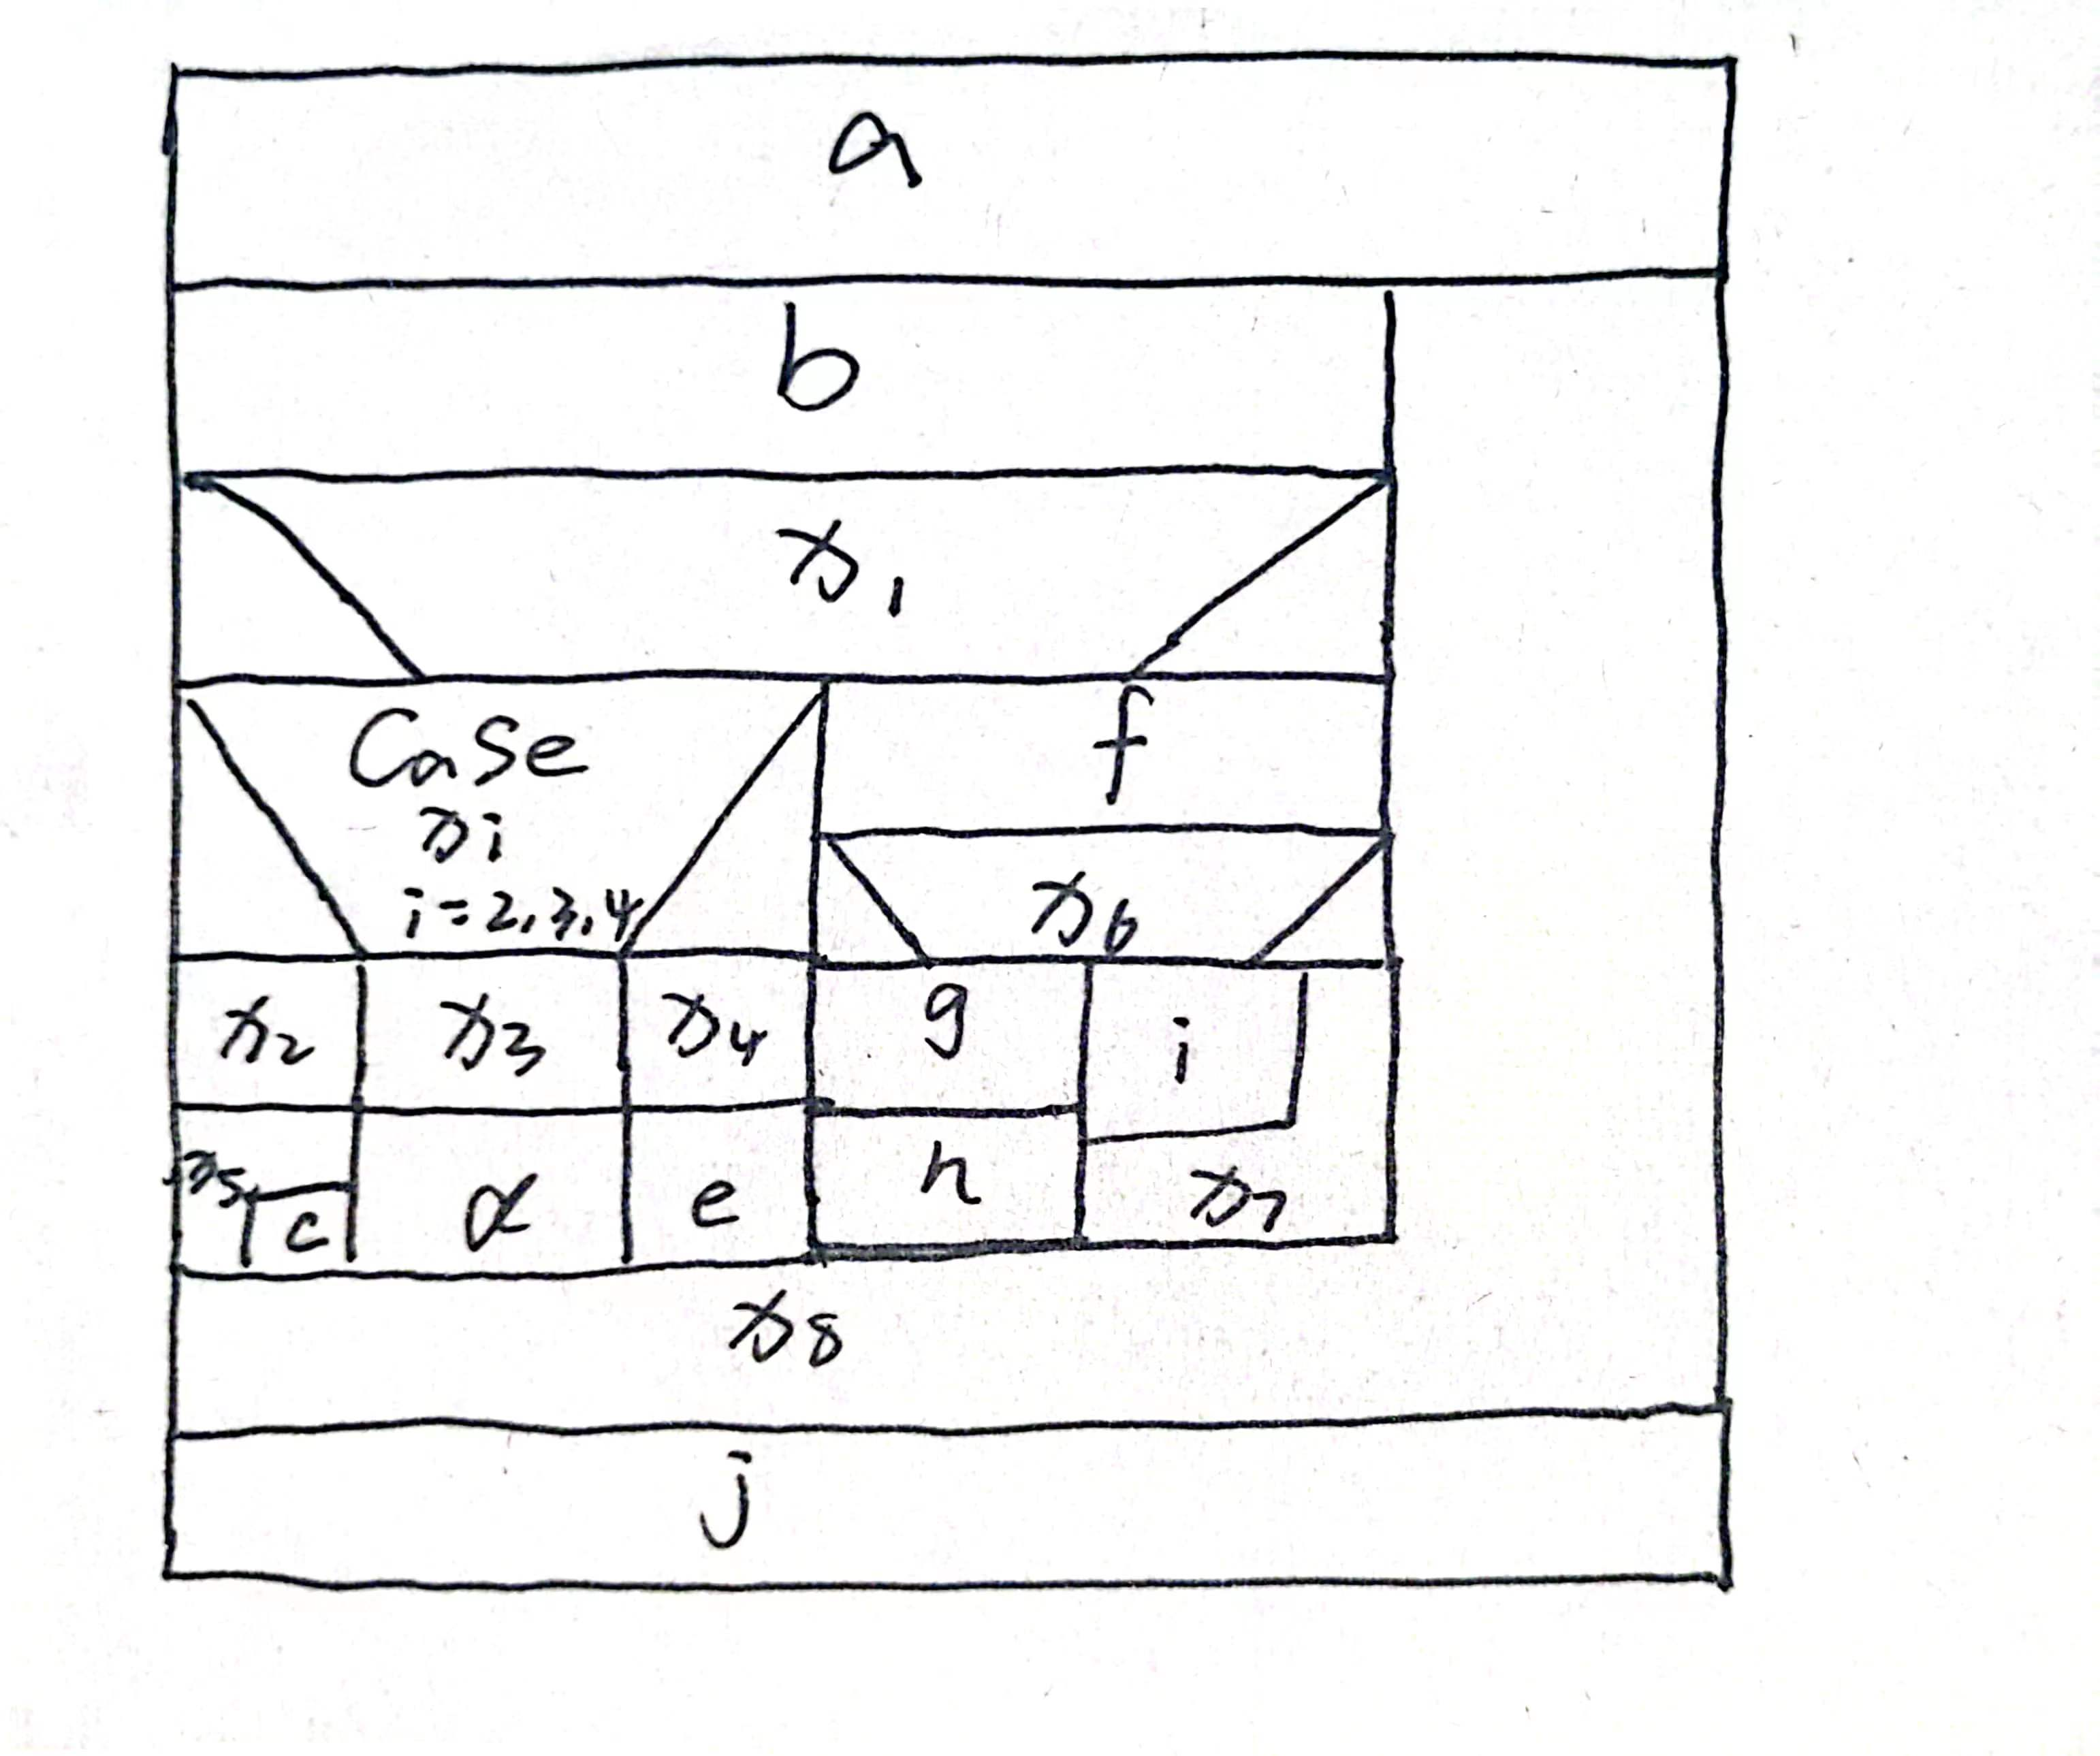 a
b
x1
Case
xi
i=2,3,4
f
x6
x2 x3 x4 g i
x5 c d e h x7
x8
j